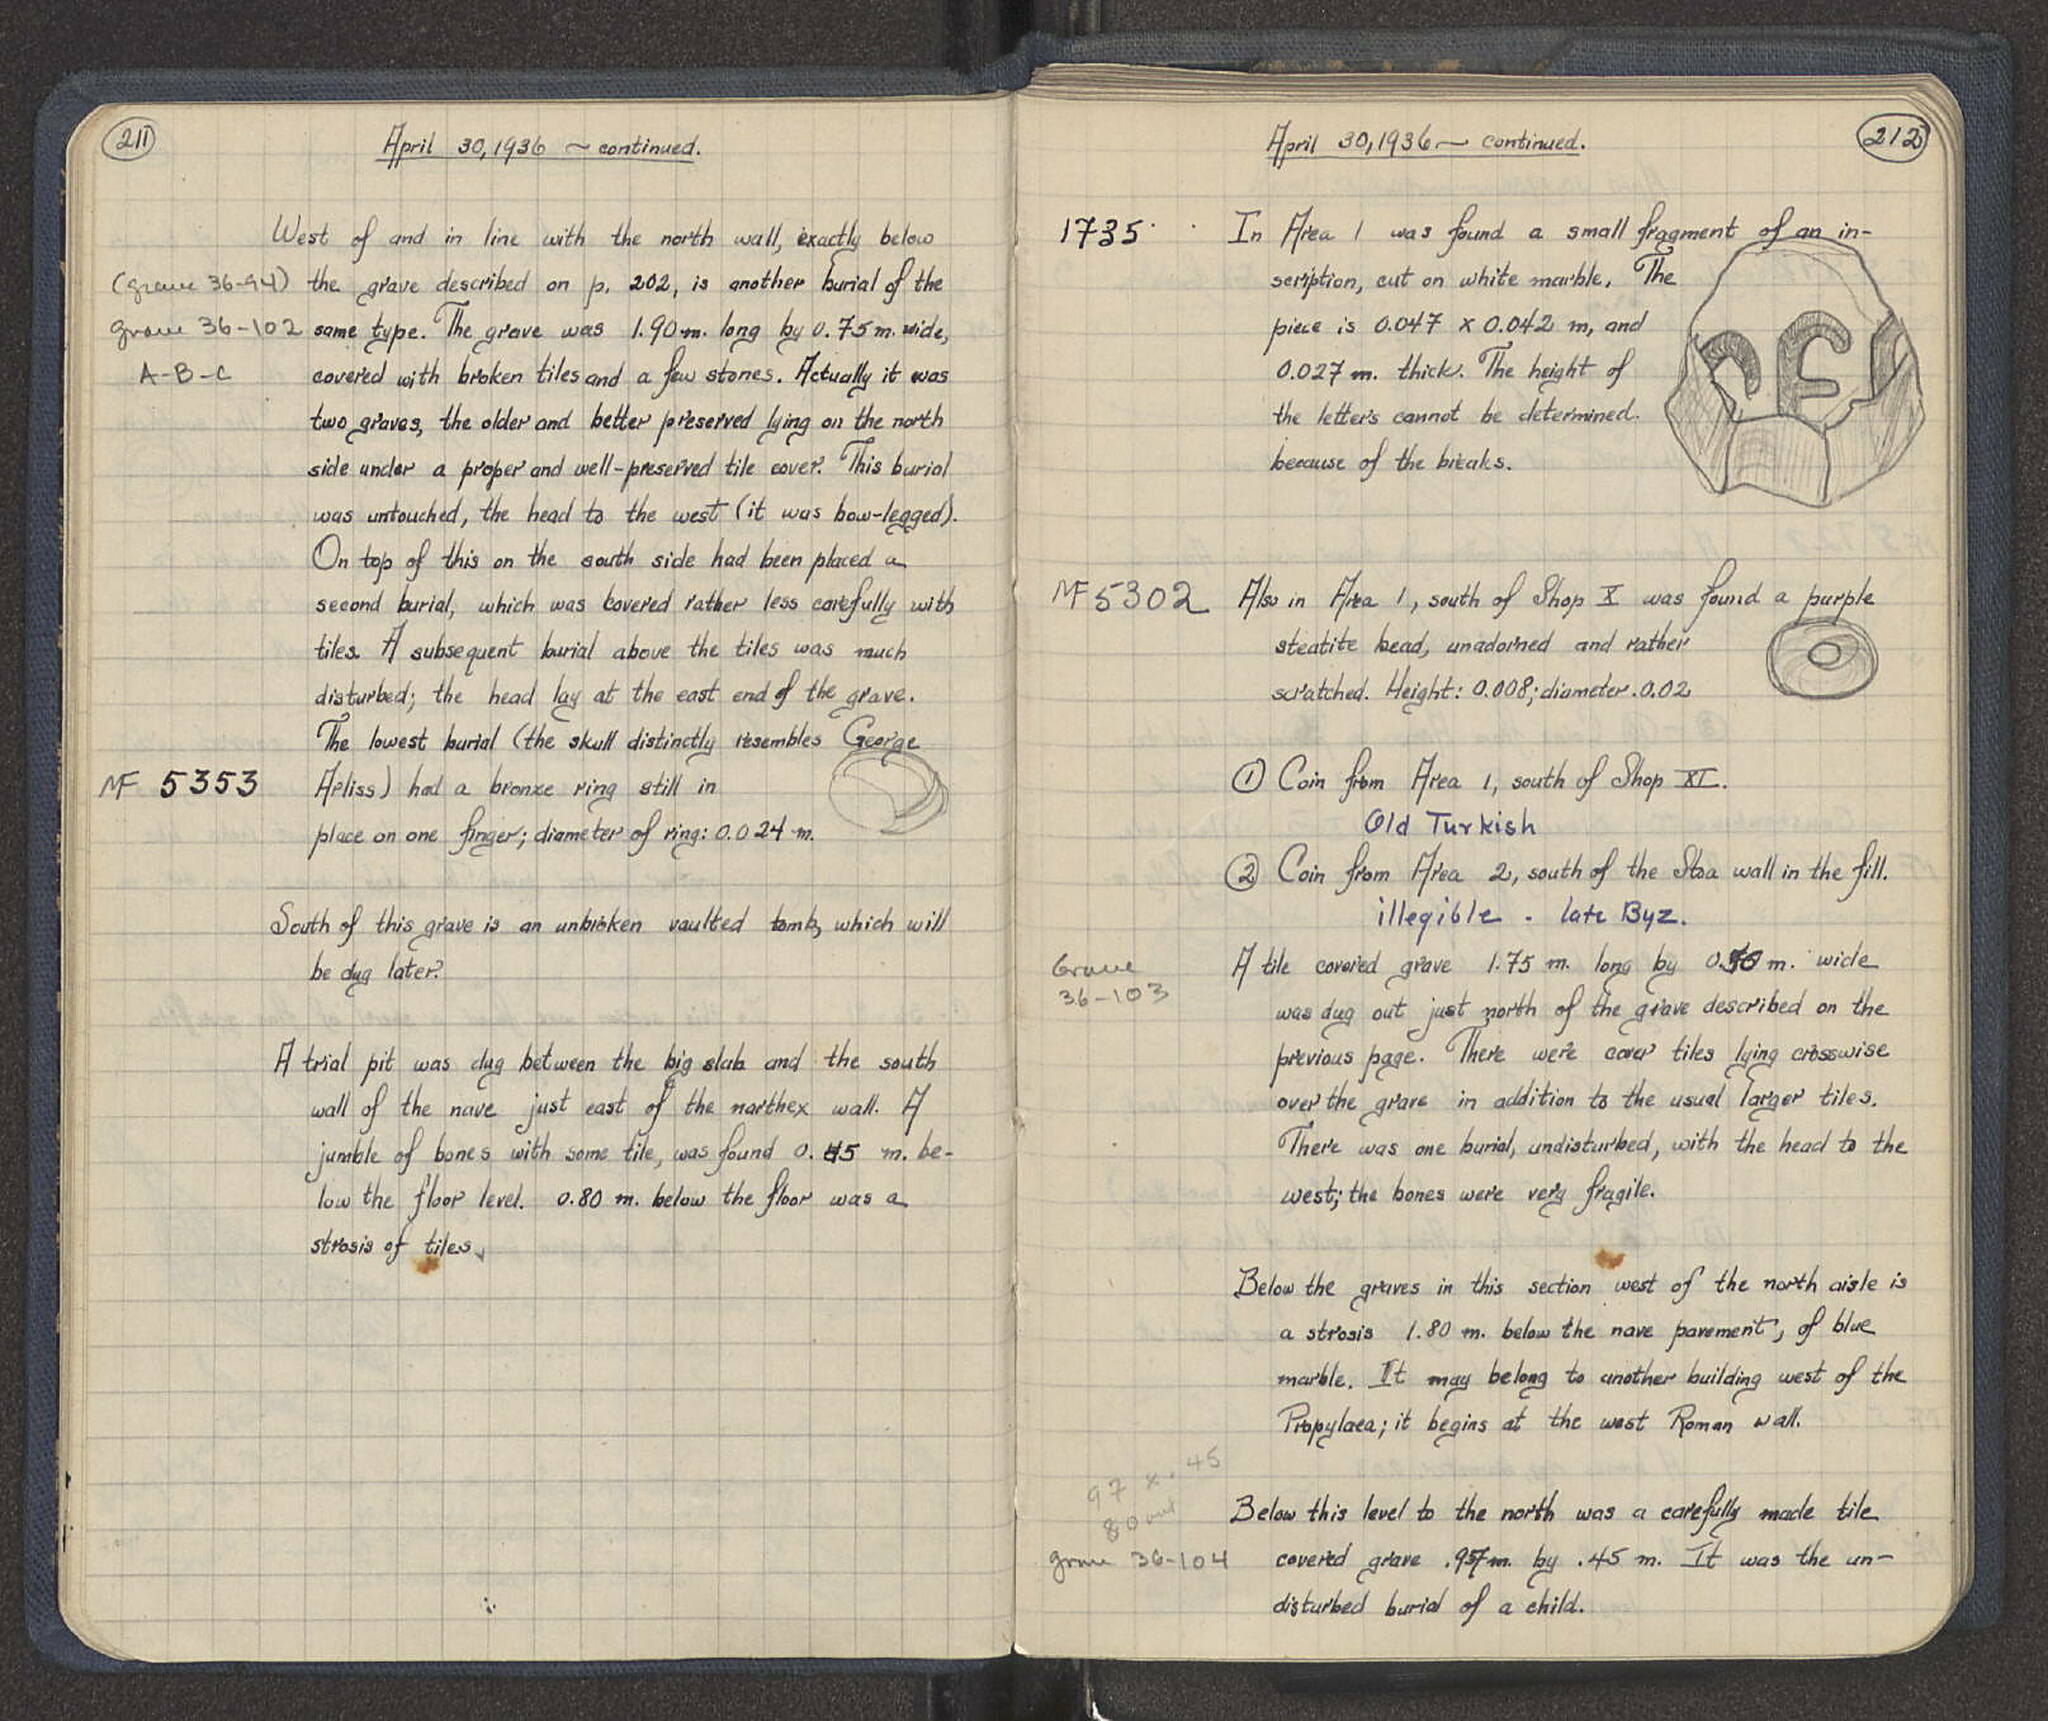 211
April 30, 1936 ~ continued.
West of and in line with the north wall, exactly below
(grave 36-94) the grave described on p. 202, is another burial of the
grave 36-102 same type. The grave was 1.90 m. long by 0.75 m. wide,
A-B-C covered with broken tiles and a few stones. Actually it was
two graves, the older and better preserved lying on the north
side under a proper and well-preserved tile cover. This burial
was untouched, the head to the west (it was bow-legged).
On top of this on the south side had been placed a
second burial, which was covered rather less carefully with
tiles. A subsequent burial above the tiles was much
disturbed; the head lay at the east end of the grave.
The lowest burial (the skull distinctly resembles George
MF 5353 Arliss) had a bronze ring still in
place on one finger; diameter of ring: 0.024 m.
South of this grave is an unbroken vaulted tomb, which will
be dug later.
A trial pit was dug between the big slab and the south
wall of the nave just east of the narthex wall. A
jumble of bones with some tile, was found 0.45 m. be-
low the floor level. 0.80 m. below the floor was a
strosis of tiles.
212
April 30, 1936 ~ continued.
1735 In Area 1 was found a small fragment of an in-
scription, cut on white marble. The
piece is 0.047 x 0.042 m, and
0.027 m. thick. The height of
the letters cannot be determined.
because of the breaks.
MF 5302 Also in Area 1, south of Shop X was found a purple
steatite bead, unadorned and rather
scratched. Height: 0.008; diameter .0.02
① Coin from Area 1, south of Shop XI.
Old Turkish
② Coin from Area 2, south of the Stoa wall in the fill.
illegible - late Byz.
Grave A tile covered grave 1.75 m. long by 0.50 m. wide
36-103 was dug out just north of the grave described on the
previous page. There were cover tiles lying crosswise
over the grave in addition to the usual larger tiles.
There was one burial, undisturbed, with the head to the
west; the bones were very fragile.
Below the graves in this section west of the north aisle is
a strosis 1.80 m. below the nave pavement, of blue
marble. It may belong to another building west of the
Propylaea; it begins at the west Roman wall.
97 x .45
80
Below this level to the north was a carefully made tile
grave 36-104 covered grave .97 m. by .45 m. It was the un-
disturbed burial of a child.